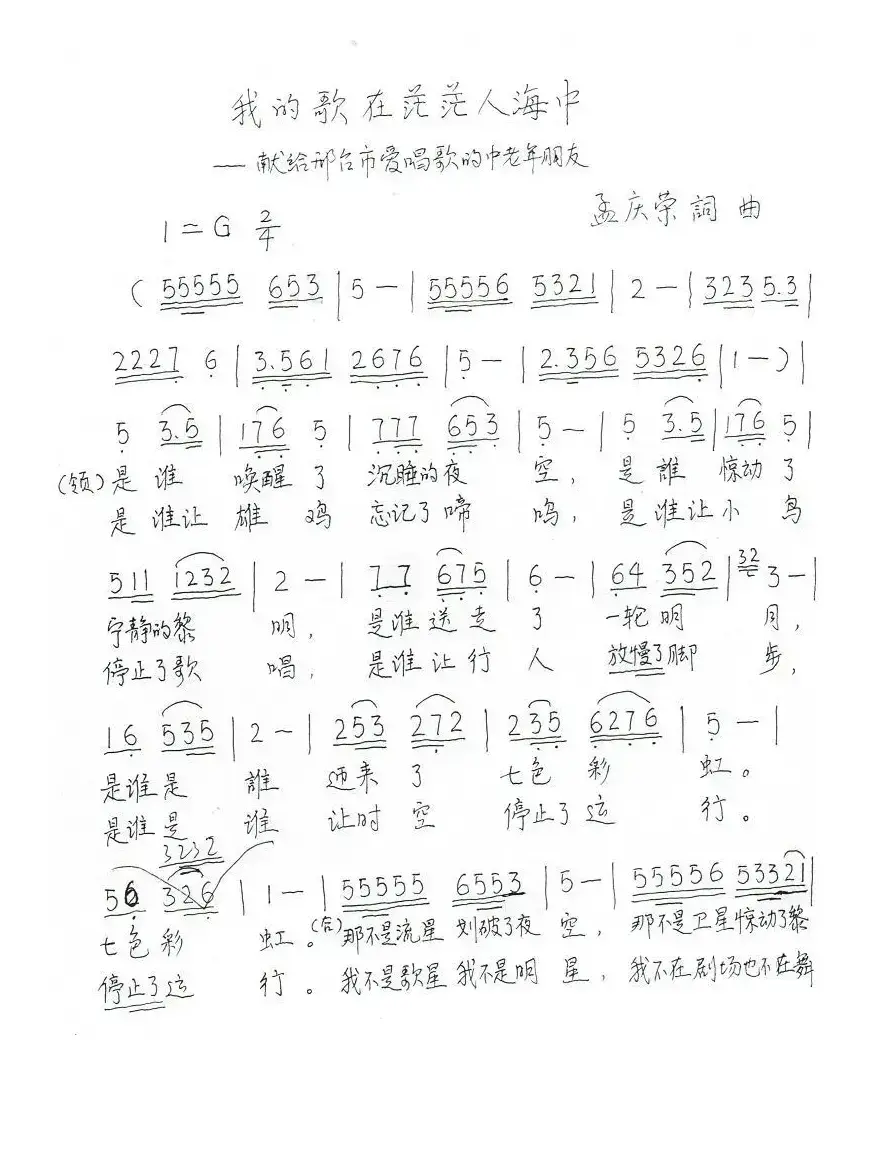 我的歌在茫茫人海中
—献给邢台市爱唱歌的中老年朋友
孟庆荣詞曲
1=G 2/4
( 55555 653 | 5 - | 55556 5321 | 2 - | 323 5.3 |
2227 6 | 3.561 2676 | 5 - | 2.356 5326 | 1 - ) |
5 3.5 | 176 5 | 777 653 | 5 - | 5 3.5 | 176 5 |
(领)是谁 唤醒了 沉睡的夜空，是誰 惊动了
是谁让雄鸡 忘记了啼鸣，是谁让小鸟
511 1232 | 2 - | 77 675 | 6 - | 64 352 | 32 3 - |
宁静的黎明，是谁送走了一轮明月，
停止了歌唱，是谁让行人放慢了脚步，
16 535 | 2 - | 253 272 | 235 6276 | 5 - |
是谁是誰 迎来了 七色彩虹。
是谁是谁 让时空 停止了运行。
3232
56 326 | 1 - | 55555 6553 | 5 - | 55556 53321 |
七色彩虹。(合)那不是流星划破了夜空，那不是卫星惊动了黎
停止了运行。我不是歌星我不是明星，我不在剧场也不在舞